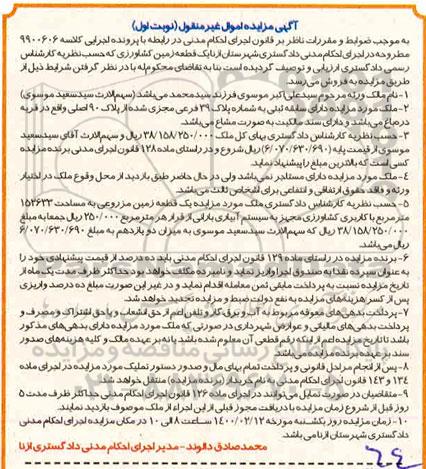 آگهی مزایده اموال غیر منقول (نوبت اول)
به موجب ضوابط و مقررات ناظر بر قانون اجرای احکام مدنی در رابطه با پرونده اجرایی کلاسه ۹۹۰۰۶۰۶
مطروحه در اجرای احکام مدنی دادگستری شهرستان ازنا یک قطعه زمین کشاورزی که حسب نظریه کارشناس
رسمی دادگستری ارزیابی و توصیف گردیده است بنا به تقاضای محکوم‌له با در نظر گرفتن شرایط ذیل از
طریق مزایده به فروش می‌رسد.
۱- نام مالک ورثه مرحوم سید علی اکبر موسوی فرزند سید محمد می‌باشد (سهم‌الارث سید سعید موسوی)
۲- ملک مورد مزایده دارای سابقه ثبتی به شماره پلاک ۳۹ فرعی مجزی شده از پلاک ۹۰ اصلی واقع در قریه
دره‌باغ می‌باشد و دارای سند مالکیت به صورت مشاع می‌باشد.
۳- حسب نظریه کارشناس دادگستری بهای کل ملک ۳۸/۱۵۸/۲۵۰/۰۰۰ ریال و سهم‌الارث آقای سید سعید
موسوی از قیمت پایه (۶/۰۷۰/۶۳۰/۶۹۰) ریال شروع و در راستای ماده ۱۲۸ قانون اجرای مدنی برنده مزایده
کسی است که بالاترین مبلغ را پیشنهاد نماید.
۴- ملک مورد مزایده دارای مستاجر نمی‌باشد ولی در حال حاضر طبق بازدید از محل وقوع ملک در اختیار
ورثه و فاقد حقوق ارتفاقی و انتفاعی برای اشخاص ثالث می‌باشد.
۵- حسب نظریه کارشناس دادگستری ملک مورد مزایده یک قطعه زمین مزروعی به مساحت ۱۵۲۶۳۳
مترمربع با کاربری کشاورزی مجهز به سیستم آبیاری بارانی از قرار هر مترمربع ۲۵۰/۰۰۰ ریال جمعا به مبلغ
۳۸/۱۵۸/۲۵۰/۰۰۰ ریال که سهم‌الارث سید سعید موسوی به میزان دو یازدهم به مبلغ ۶/۰۷۰/۶۳۰/۶۹۰
ریال می‌باشد.
۶- برنده مزایده در راستای ماده ۱۲۹ قانون اجرای احکام مدنی باید ده درصد از قیمت پیشنهادی خود را
به عنوان سپرده نقدا به صندوق اجرا واریز نماید و نامبرده مکلف خواهد بود حداکثر ظرف مدت یک ماه از
تاریخ مزایده نسبت به پرداخت مابقی ثمن معامله اقدام نماید و در غیر این صورت مبلغ ده درصد واریزی
پس از کسر هزینه‌های مزایده به نفع دولت ضبط و مزایده تجدید خواهد شد.
۷- پرداخت بدهی‌های معوقه مربوط به آب و برق و گاز و تلفن اعم از حق انشعاب و یا حق اشتراک و مصرف و
پرداخت بدهی‌های مالیاتی و عوارض شهرداری در صورتی که ملک مورد مزایده دارای بدهی‌های مذکور
باشد تا تاریخ مزایده اعم از اینکه رقم قطعی آن معلوم شده باشد یا نه بر عهده مالک و کلیه هزینه‌های صدور
سند بر عهده برنده مزایده می‌باشد.
۸- پس از انجام مراحل قانونی و پرداخت تمام بهای مال و صدور دستور تملیک مورد مزایده در اجرای ماده
۱۳۴ و ۱۴۳ قانون اجرای احکام مدنی به نام خریدار (برنده مزایده) منتقل خواهد شد.
۹- متقاضیان در صورت تمایل می‌توانند در اجرای ماده ۱۲۶ قانون اجرای احکام مدنی حداکثر ظرف مدت ۵
روز قبل از شروع زمان مزایده با دریافت مجوز قبلی از این اجراء از ملک موصوف بازدید نمایند.
۱۰- زمان مزایده روز یکشنبه مورخه ۱۴۰۰/۰۲/۱۲ ساعت ۸ الی ۱۰ در مکان مزایده اجرای احکام مدنی
دادگستری شهرستان ازنا می‌باشد.
محمد صادق دالوند - مدیر اجرای احکام مدنی دادگستری ازنا